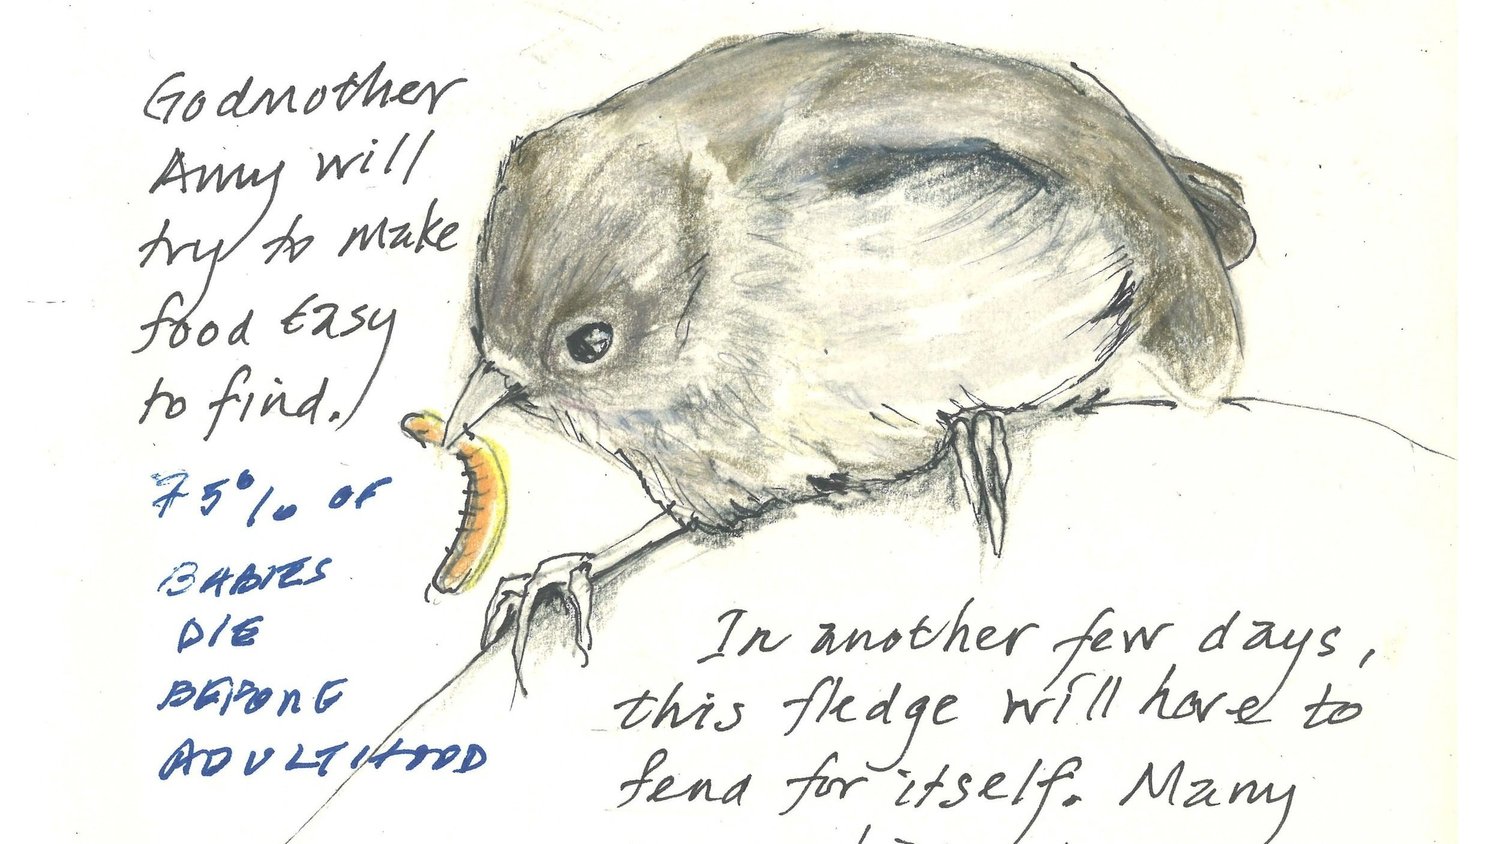 Godmother
Amy will
try to make
food Easy
to find.
75% OF
BABIES
DIE
BEFORE
ADULTHOOD
In another few days,
this fledge will have to
fend for itself. Many